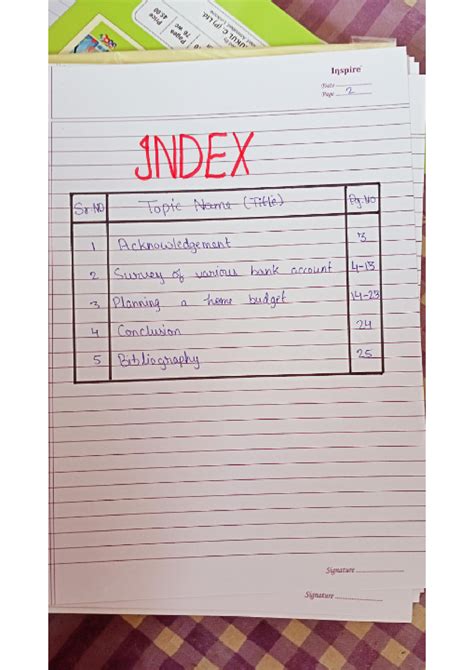 Price
45.00
Pages
76 WC
Inspire
Date
Page 2
INDEX
Sr.NO Topic Name (Title) Pg.NO
1 Acknowledgement 3
2 Survey of various bank account 4-13
3 Planning a home budget 14-23
4 Conclusion 24
5 Bibliography 25
Signature
Signature